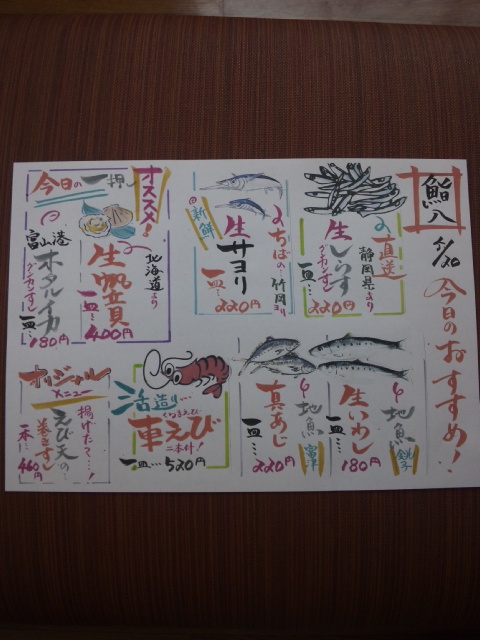 鮨八
5/20
今日のおすすめ!
直送
静岡県より
生しらす
グンカンずし
一皿…
220円
ちばの竹岡ヨリ
生サヨリ
新鮮
一皿…
220円
オススメ!
北海道より
生帆立貝
一皿…
400円
今日の一押し
富山港
ホタルイカ
グンカンずし
一皿…
180円
地魚
銚子
生いわし
一皿…
180円
地魚
富津
真あじ
一皿…
220円
活造り…
車えび
くるまえび
二本付!
一皿…520円
オリジナル
メニュー
揚げたて…!
えび天の…
巻きずし
一本…
460円